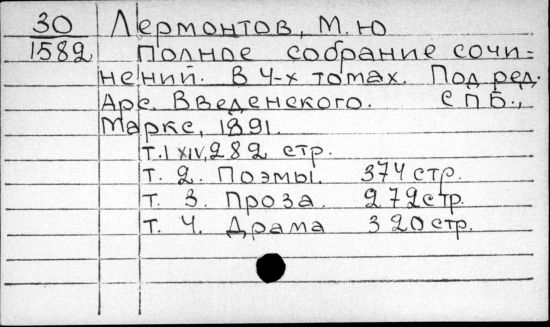 30 Лермонтов, М.Ю
1582 Полное собрание сочи-
нений. В 4-х томах. Под ред.
Арс. Введенского. СПБ.,
Маркс, 1891.
т. I XIV, 282 стр.
т. 2. Поэмы. 374 стр.
т. 3. Проза. 272 стр.
т. 4. Драма 320 стр.